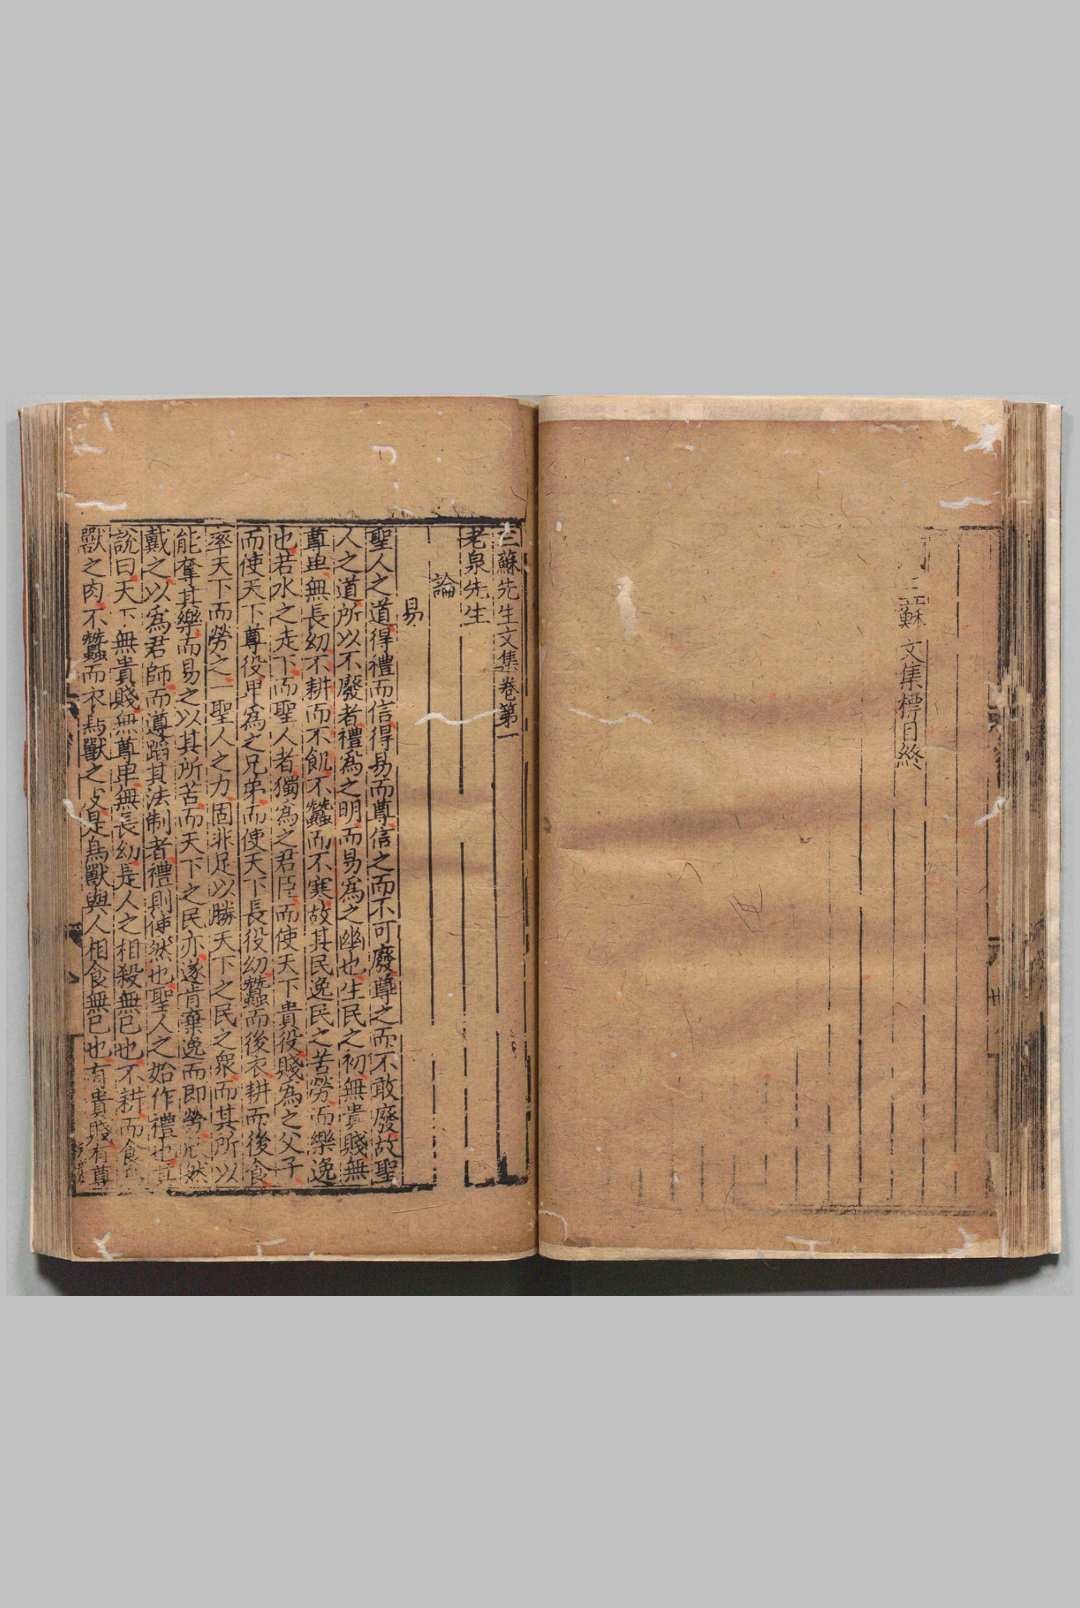 三蘇文集標目終
三蘇先生文集卷第一
老泉先生
論
易
聖人之道得禮而信得易而尊信之而不可廢尊之而不敢廢故聖
人之道所以不廢者禮爲之明而易爲之幽也生民之初無貴賤無
尊卑無長幼不耕而不飢不蠶而不寒故其民逸民之苦勞而樂逸
也若水之走下而聖人者獨爲之君臣而使天下貴役賤爲之父子
而使天下尊役卑爲之兄弟而使天下長役幼蠶而後衣耕而後食
率天下而勞之一聖人之力固非足以勝天下之民之衆而其所以
能奪其樂而易之以其所苦而天下之民亦遂肯棄逸而即勞欣然
戴之以爲君師而遵蹈其法制者禮則使然也聖人之始作禮也其
說曰天下無貴賤無尊卑無長幼是人之相殺無已也不耕而食鳥
獸之肉不蠶而衣鳥獸之皮是鳥獸與人相食無已也有貴賤有尊